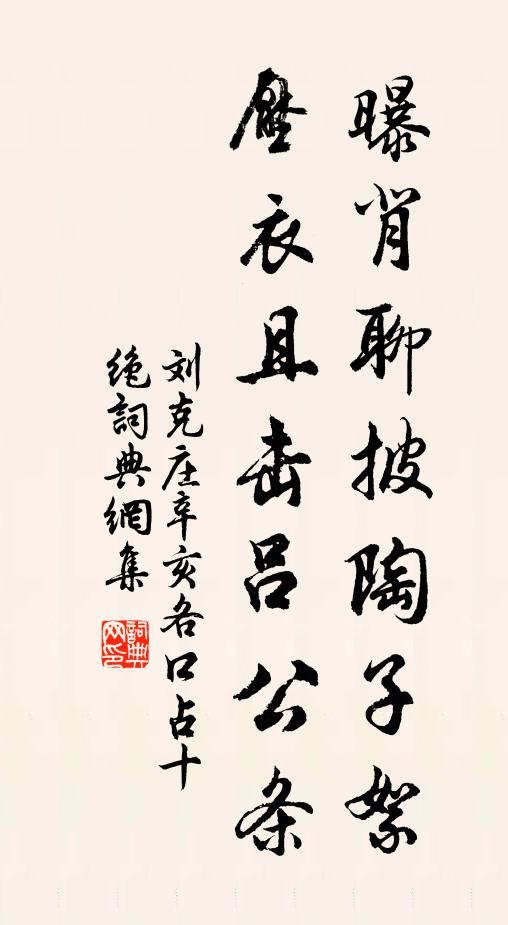 曝背聊披陶子絮
壓衣且击吕公条
刘克庄辛亥各口占十
绝詞典網集
詞典网印